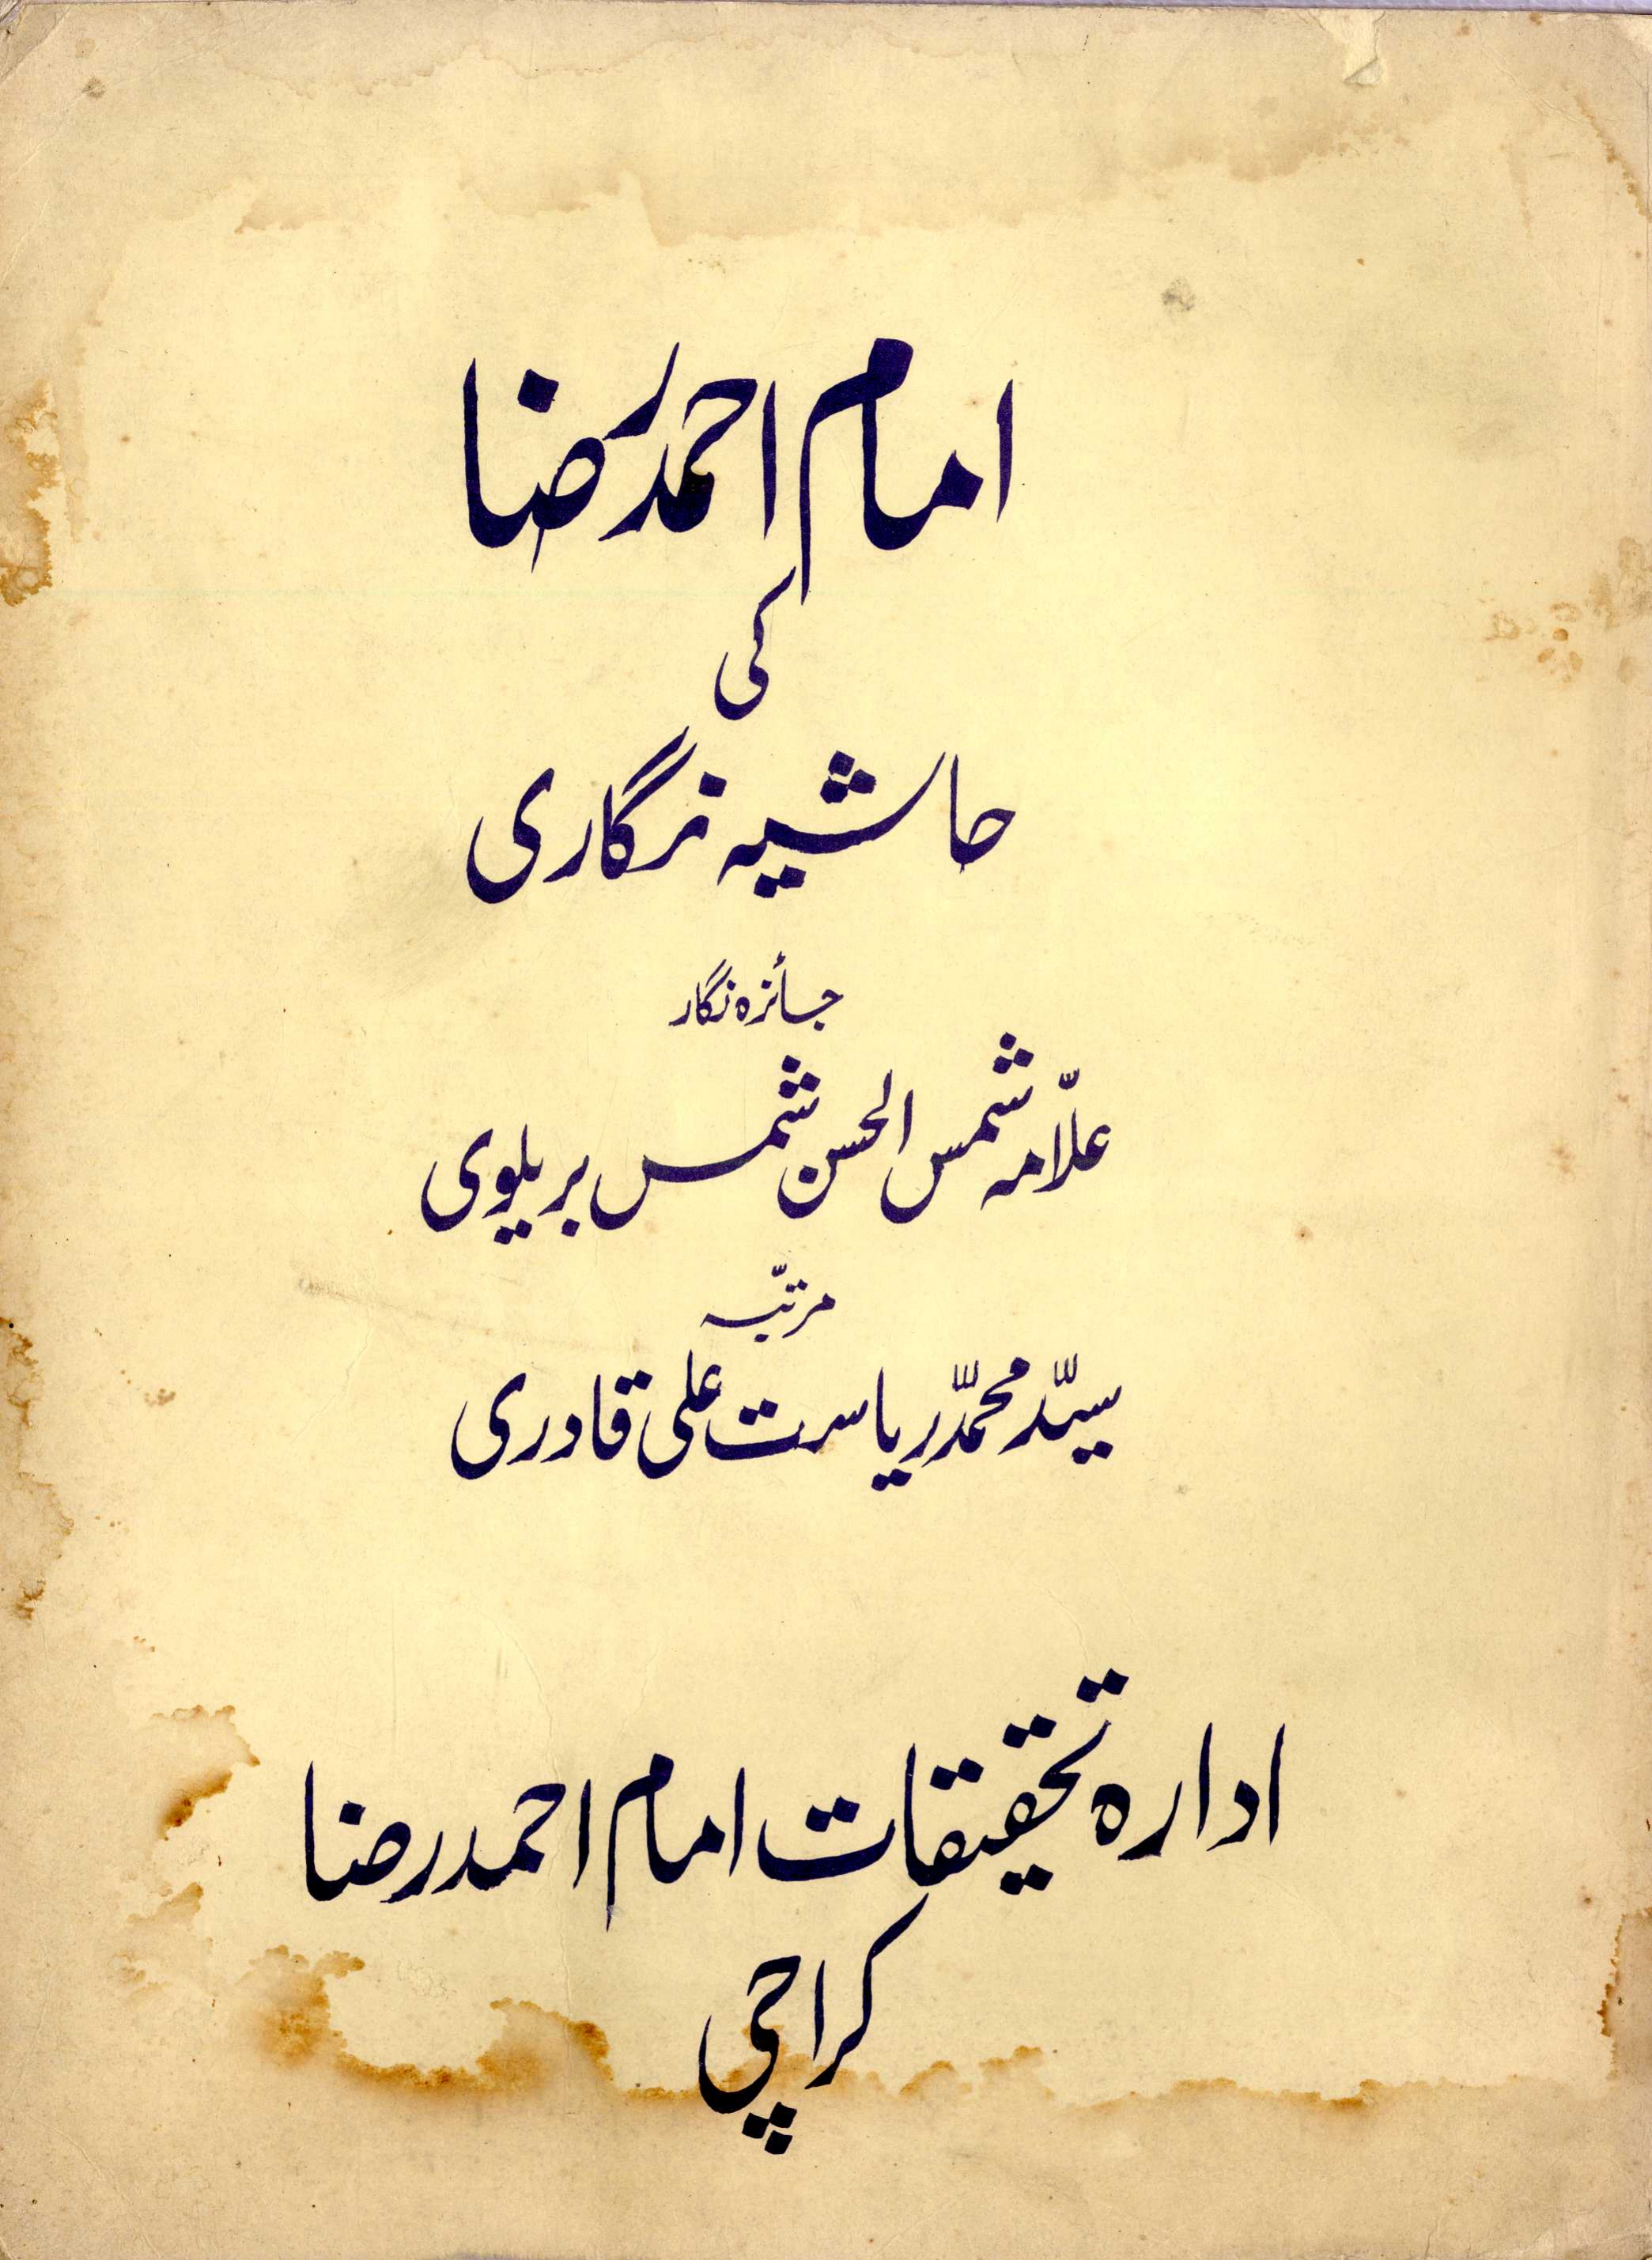 امام احمد رضا
کی
حاشیہ نگاری
جائزہ نگار
علّامہ شمس الحسن شمس بریلوی
مرتبّہ
سیّد محمّد ریاست علی قادری
ادارہ تحقیقات امام احمد رضا
کراچی